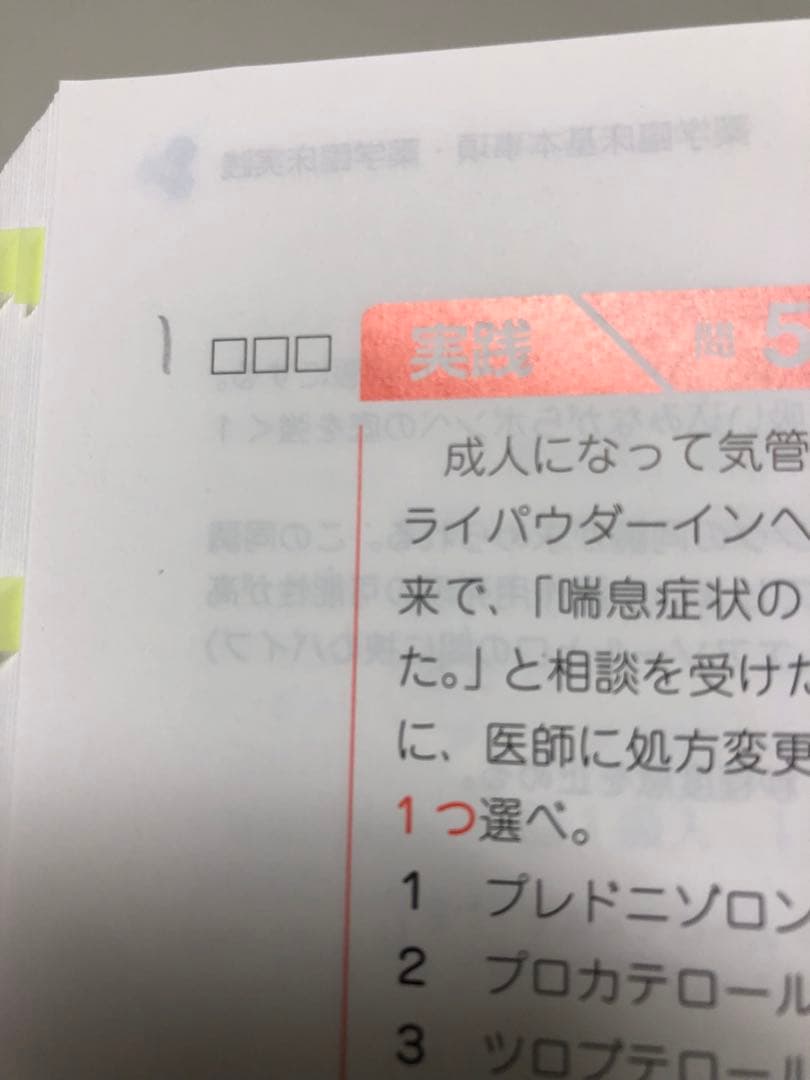 薬学臨床基本事項・薬学臨床実践
1 □□□ 実践 問 5
成人になって気管
ライパウダーインヘ
来で、「喘息症状の
た。」と相談を受けた
に、医師に処方変更
1つ選べ。
1 プレドニゾロン
2 プロカテロール
3 ツロブテロール